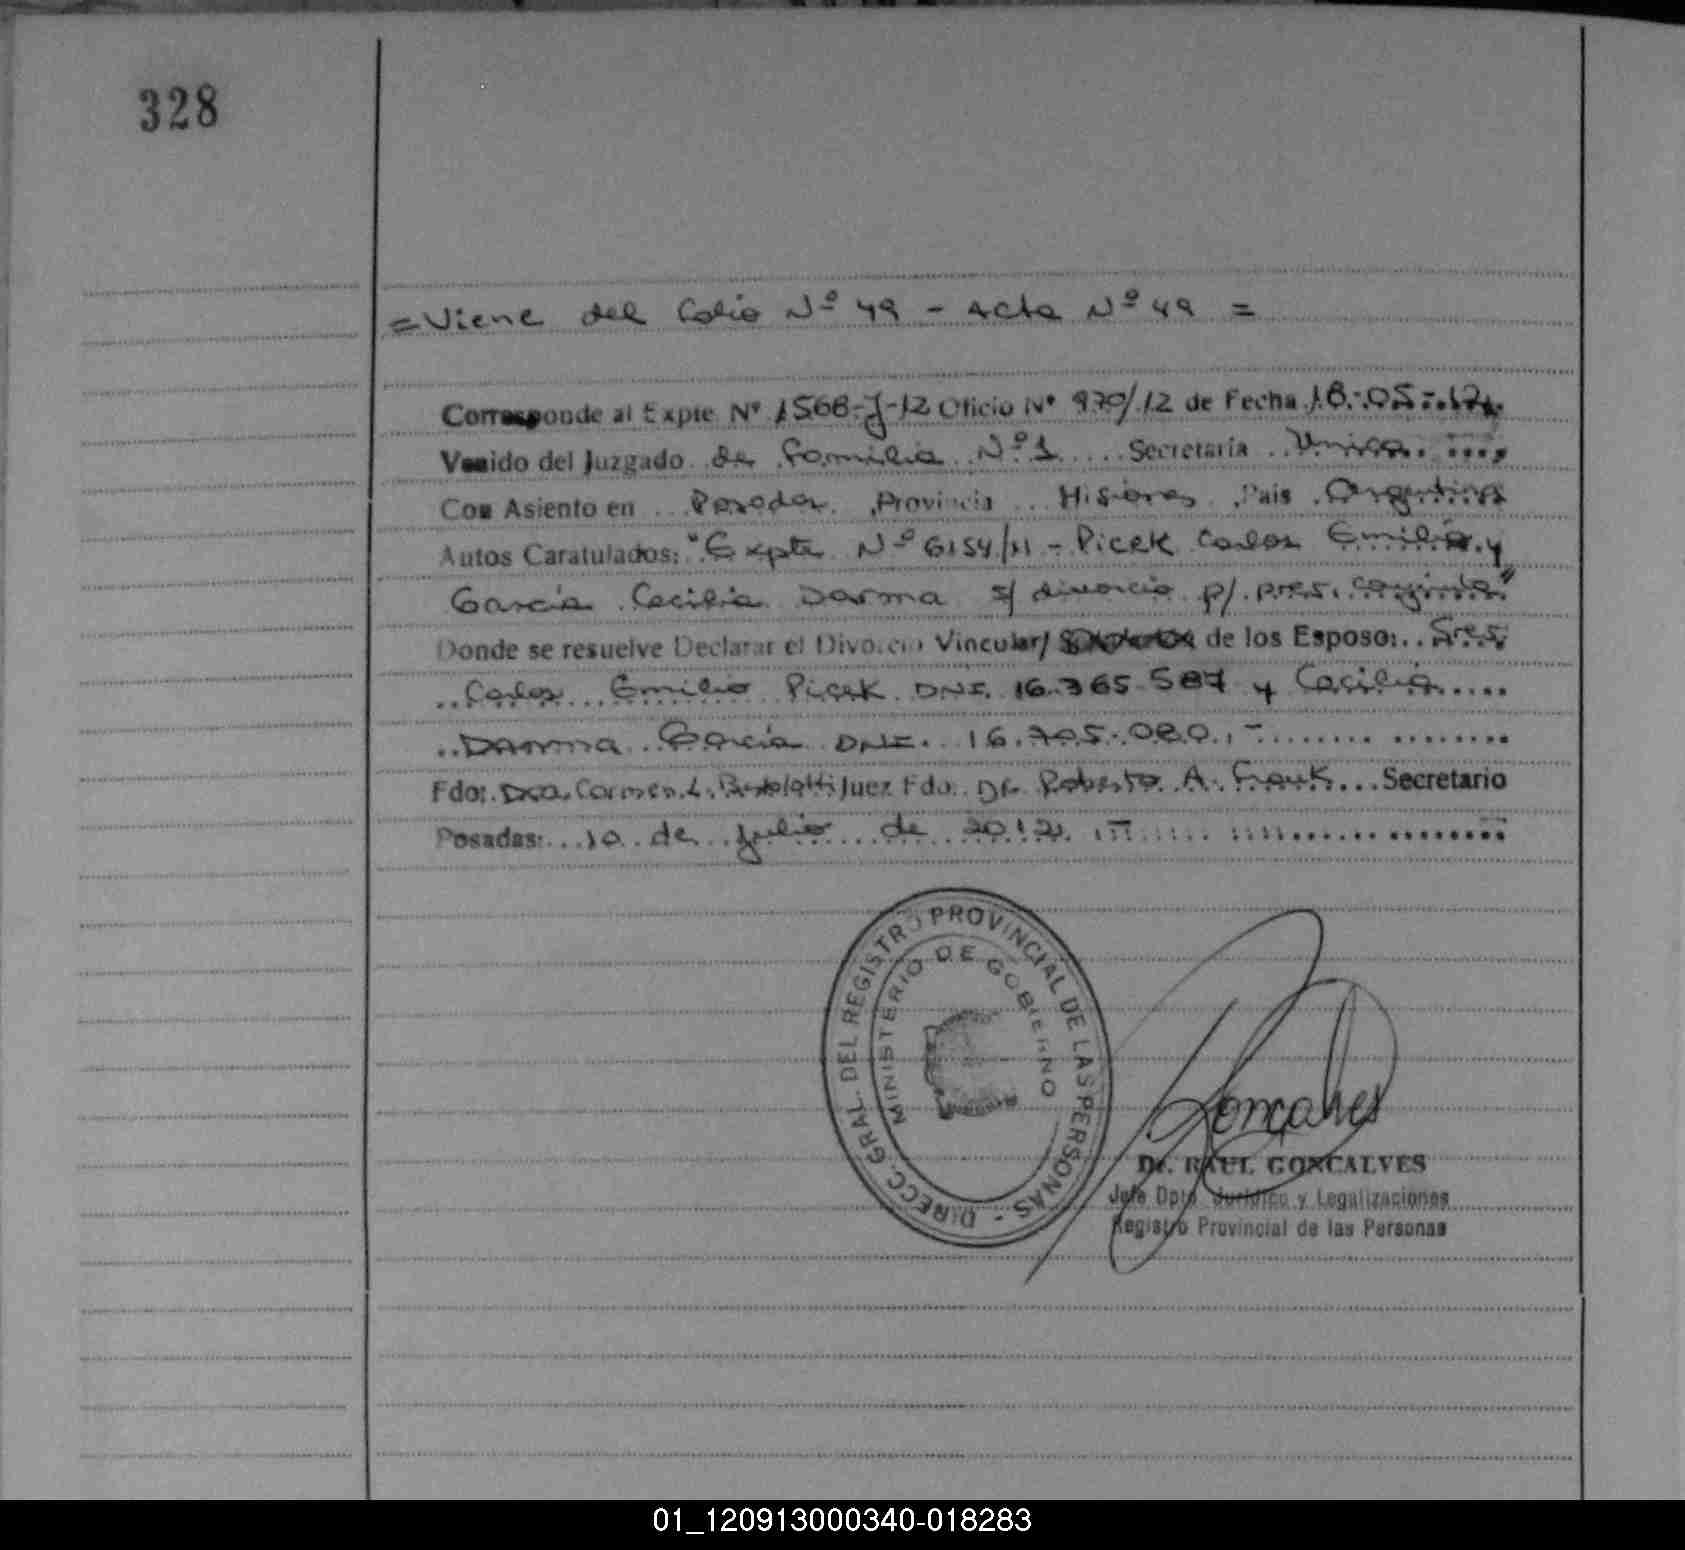 328
= Viene del folio Nº 49 - Acta Nº 49 =
Corresponde al Expte Nº 1568-J-12 Oficio Nº 970/12 de Fecha 18-05-12
Venido del Juzgado de Familia Nº 1 Secretaria Unica
Con Asiento en Posadas Provincia Misiones Pais Argentina
Autos Caratulados: "Expte Nº 6154/11 - Picek Carlos Emilio y
Garcia Cecilia Darma s/ divorcio p/ pres. conjunta"
Donde se resuelve Declarar el Divorcio Vincular/ de los Esposo: Sres
Carlos Emilio Picek DNI. 16.365.587 y Cecilia
Darma Garcia DNI. 16.705.080.-
Fdo: Dra. Carmen L. Juez Fdo: Dr. Roberto A. Frank Secretario
Posadas: 10 de julio de 2012
DIRECC. GRAL. DEL REGISTRO PROVINCIAL DE LAS PERSONAS -
MINISTERIO DE GOBIERNO
Goncalves
Dr. RAUL GONCALVES
Jefe Dpto. Jurídico y Legalizaciones
Registro Provincial de las Personas
01_120913000340-018283